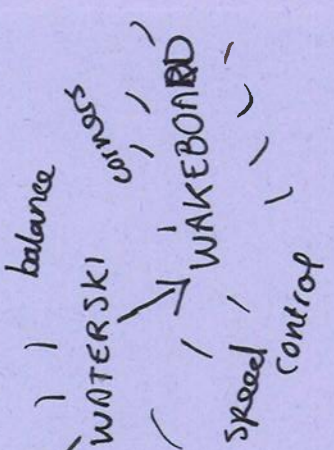 balance
WATERSKI
corners
WAKEBOARD
speed
control